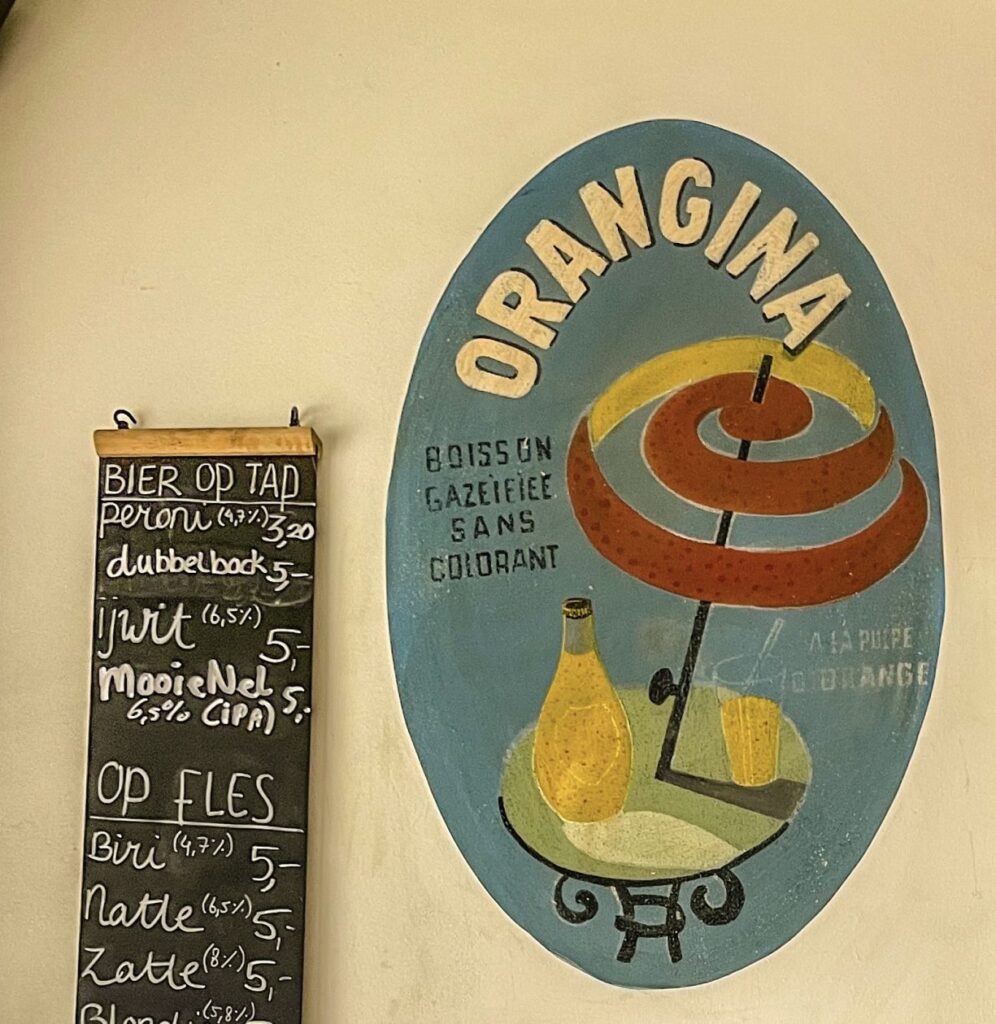 BIER OP TAP
peroni (4,7%) 3,20
dubbelbock 5,-
ijwit (6,5%) 5,-
MooieNel 5,-
6,5% (iPA)
OP FLES
Biri (4,7%) 5,-
Natte (6,5%) 5,-
Zatte (8%) 5,-
(5,8%)
ORANGINA
BOISSON
GAZEIFIEE
SANS
COLORANT
A LA PULPE
D'ORANGE